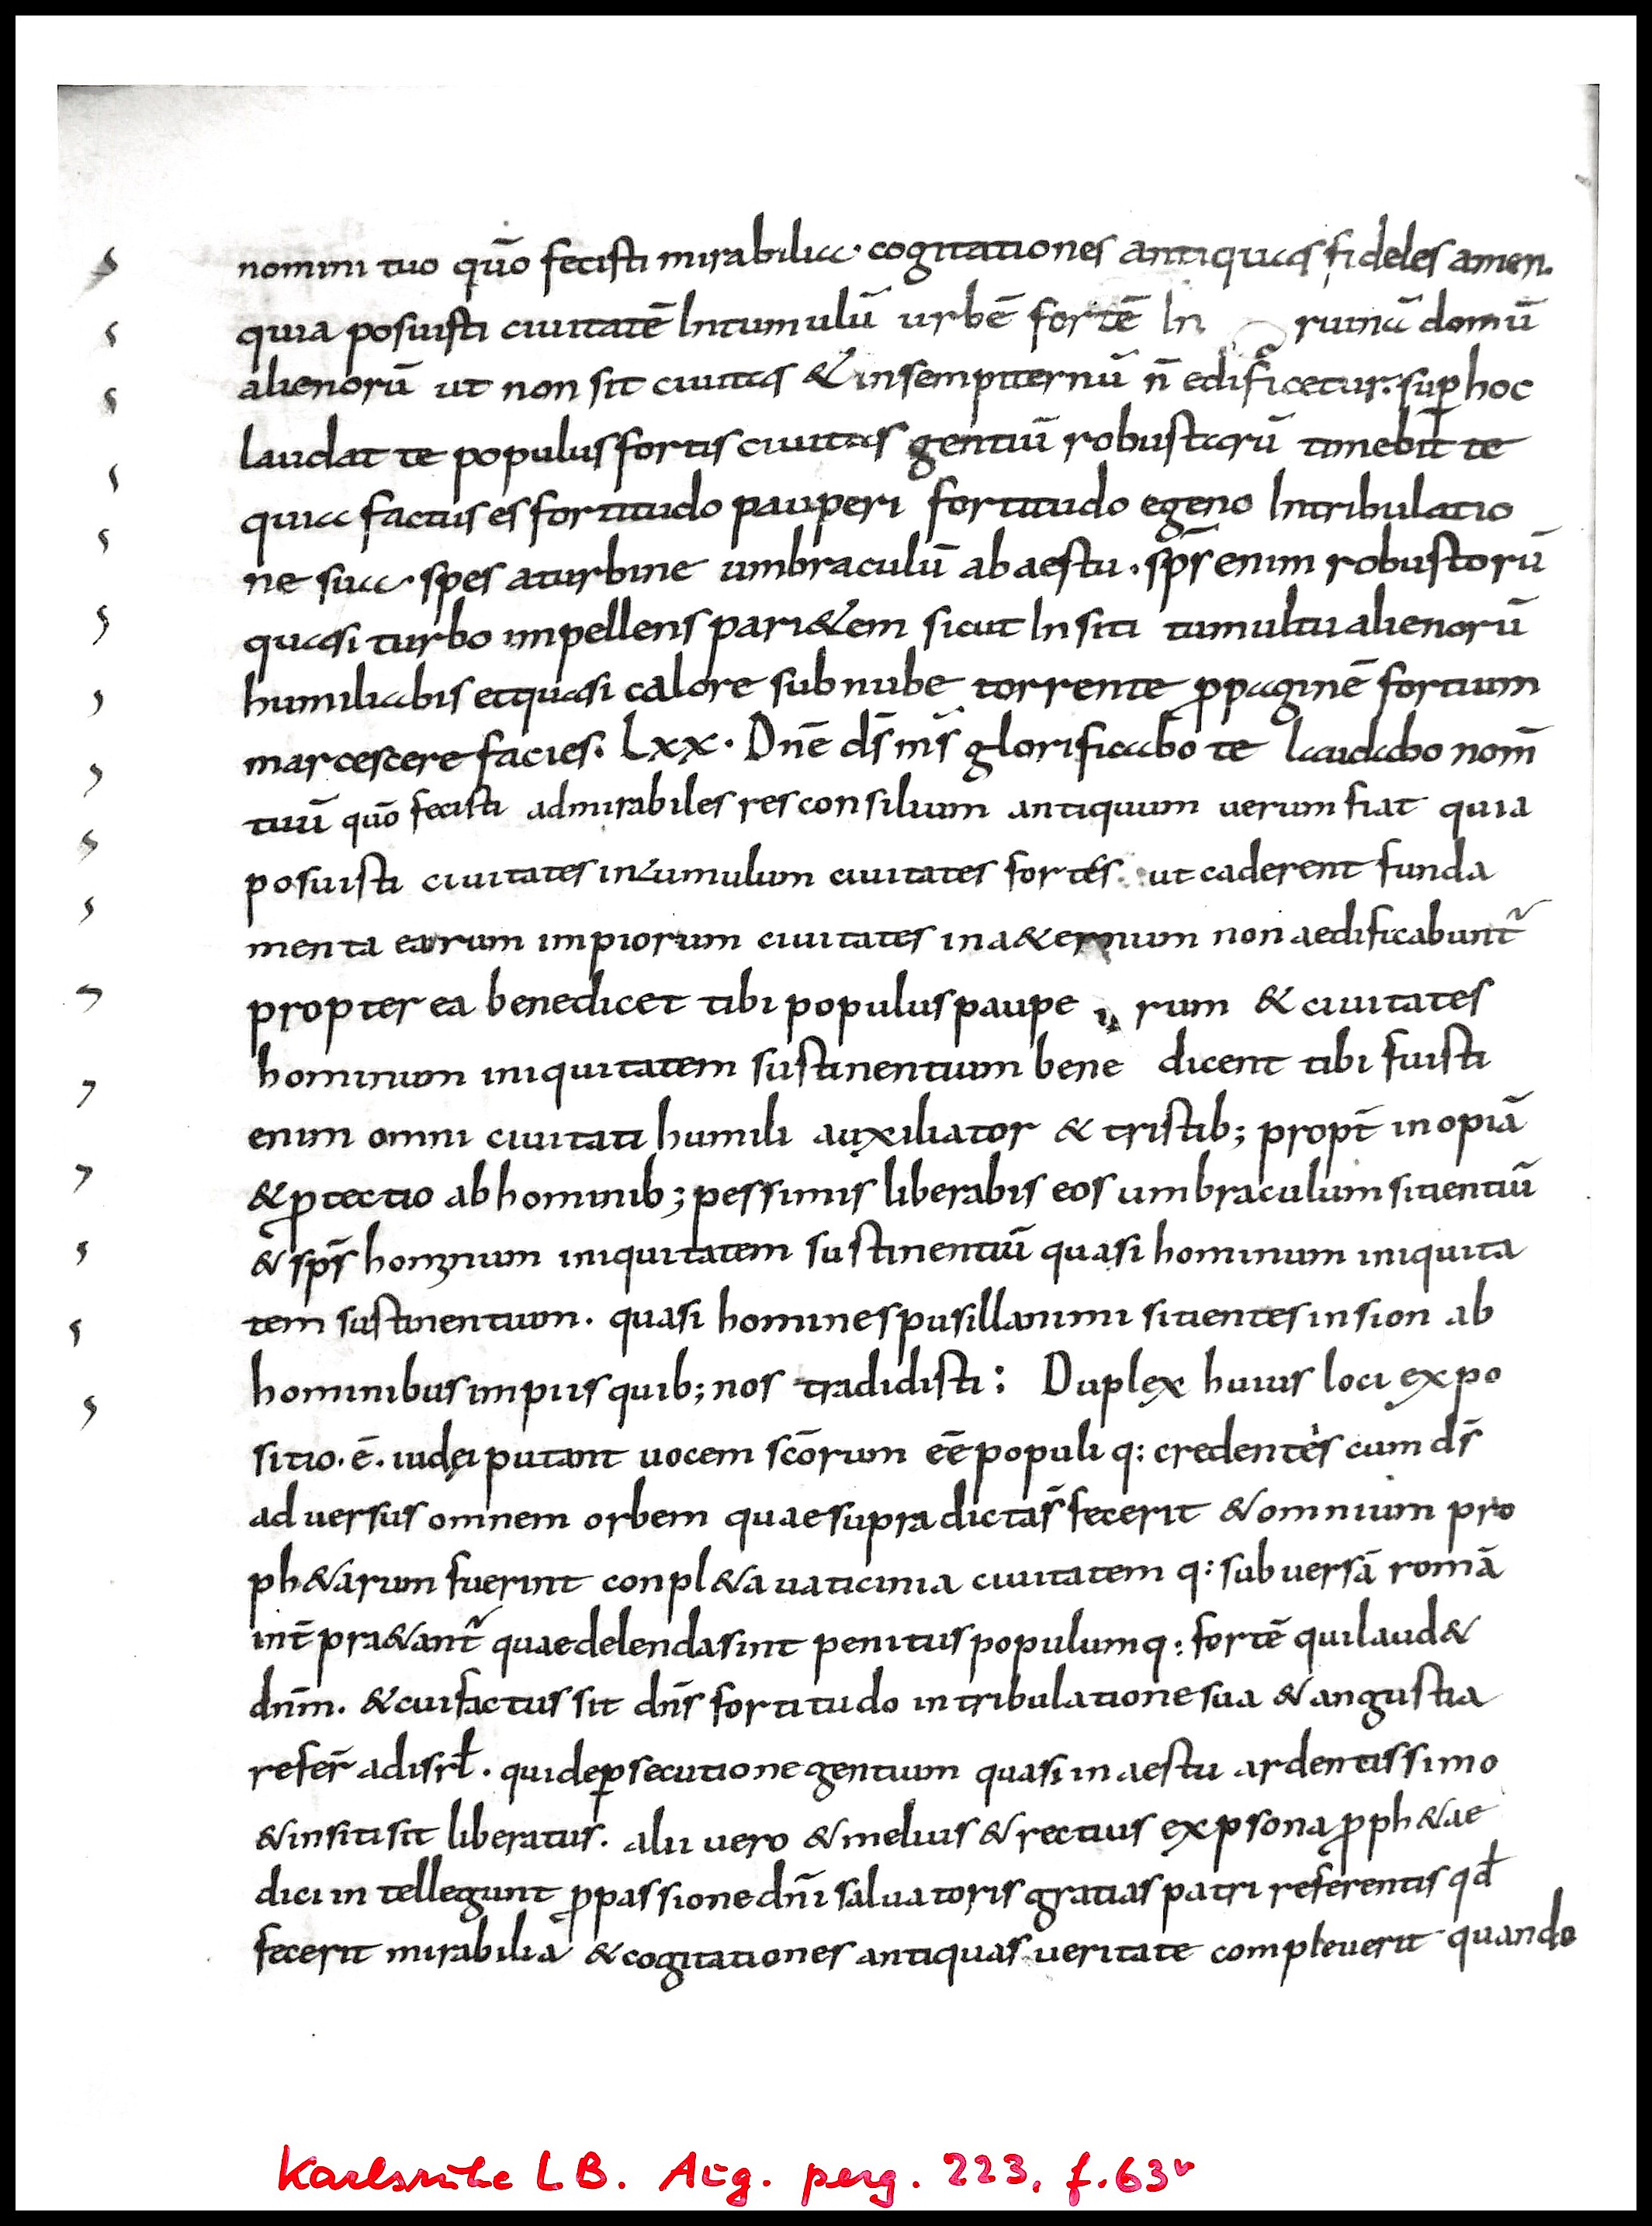 nomini tuo quō fecisti mirabilia· cogitationes antiquas fideles amen.
quia posuisti ciuitatē Intumulū urbē fortē In ruinā domū
alienorū ut non sit ciuitas & insempiternū n̄ edificetur: sup̱ hoc
laudat te populus fortis ciuitas gentiū robustarū timebit̄ te
quia factus es fortitudo pauperi fortitudo egeno Intribulatio
ne sua· spes aturbine umbraculū ab aestu· sp̄s enim robustorū
quasi turbo impellens pari&em sicut In siti tumultu alienorū
humiliabis et quasi calore sub nube torrente ꝓpaginē fortium
marcescere facies· Lxx· Dn̄e d̄s m̄s glorificabo te laudabo nom̄
tuū quō fecisti admirabiles res consilium antiquum uerum fiat quia
posuisti ciuitates in tumulum ciuitates fortes ut caderent funda
menta earum impiorum ciuitates in a&ernum non aedificabunt̄
propter ea benedicet tibi populus paupe rum & ciuitates
hominum iniquitatem sustinentium bene dicent tibi fuisti
enim omni ciuitati humili auxiliator & tristib; propt̄ inopiā
& ꝓtectio ab hominib; pessimis liberabis eos umbraculum sitientiū
& sp̄s hominum iniquitatem sustinentiū quasi hominum iniquita
tem sustinentium· quasi homines pusillanimi sitientes in sion ab
hominibus impiis quib; nos tradidisti: Duplex huius loci expo
sitio· ē· iudęi putant uocem scōrum eē̄ populi q: credentes cum d̄s
ad uersus omnem orbem quae supra dicta s̄ fecerit & omnium pro
ph&arum fuerint conpl&a uaticinia ciuitatem q: subuersā romā
int̄pra&ant̄ quae delenda sint penitus populum q: fortē qui laud&
dn̄m· & cui factus sit dn̄s fortitudo in tribulatione sua & angustia
refer̄ ad isrł· qui de ꝑsecutione gentium quasi in aestu ardentissimo
& in siti sit liberatus· alii uero & melius & rectius ex ꝑsona ꝓph&ae
dici in tellegunt ꝓ passione dn̄i saluatoris gratias patri referentis qđ
fecerit mirabilia & cogitationes antiquas ueritate compleuerit quando
Karlsruhe LB. Aug. perg. 223, f.63v